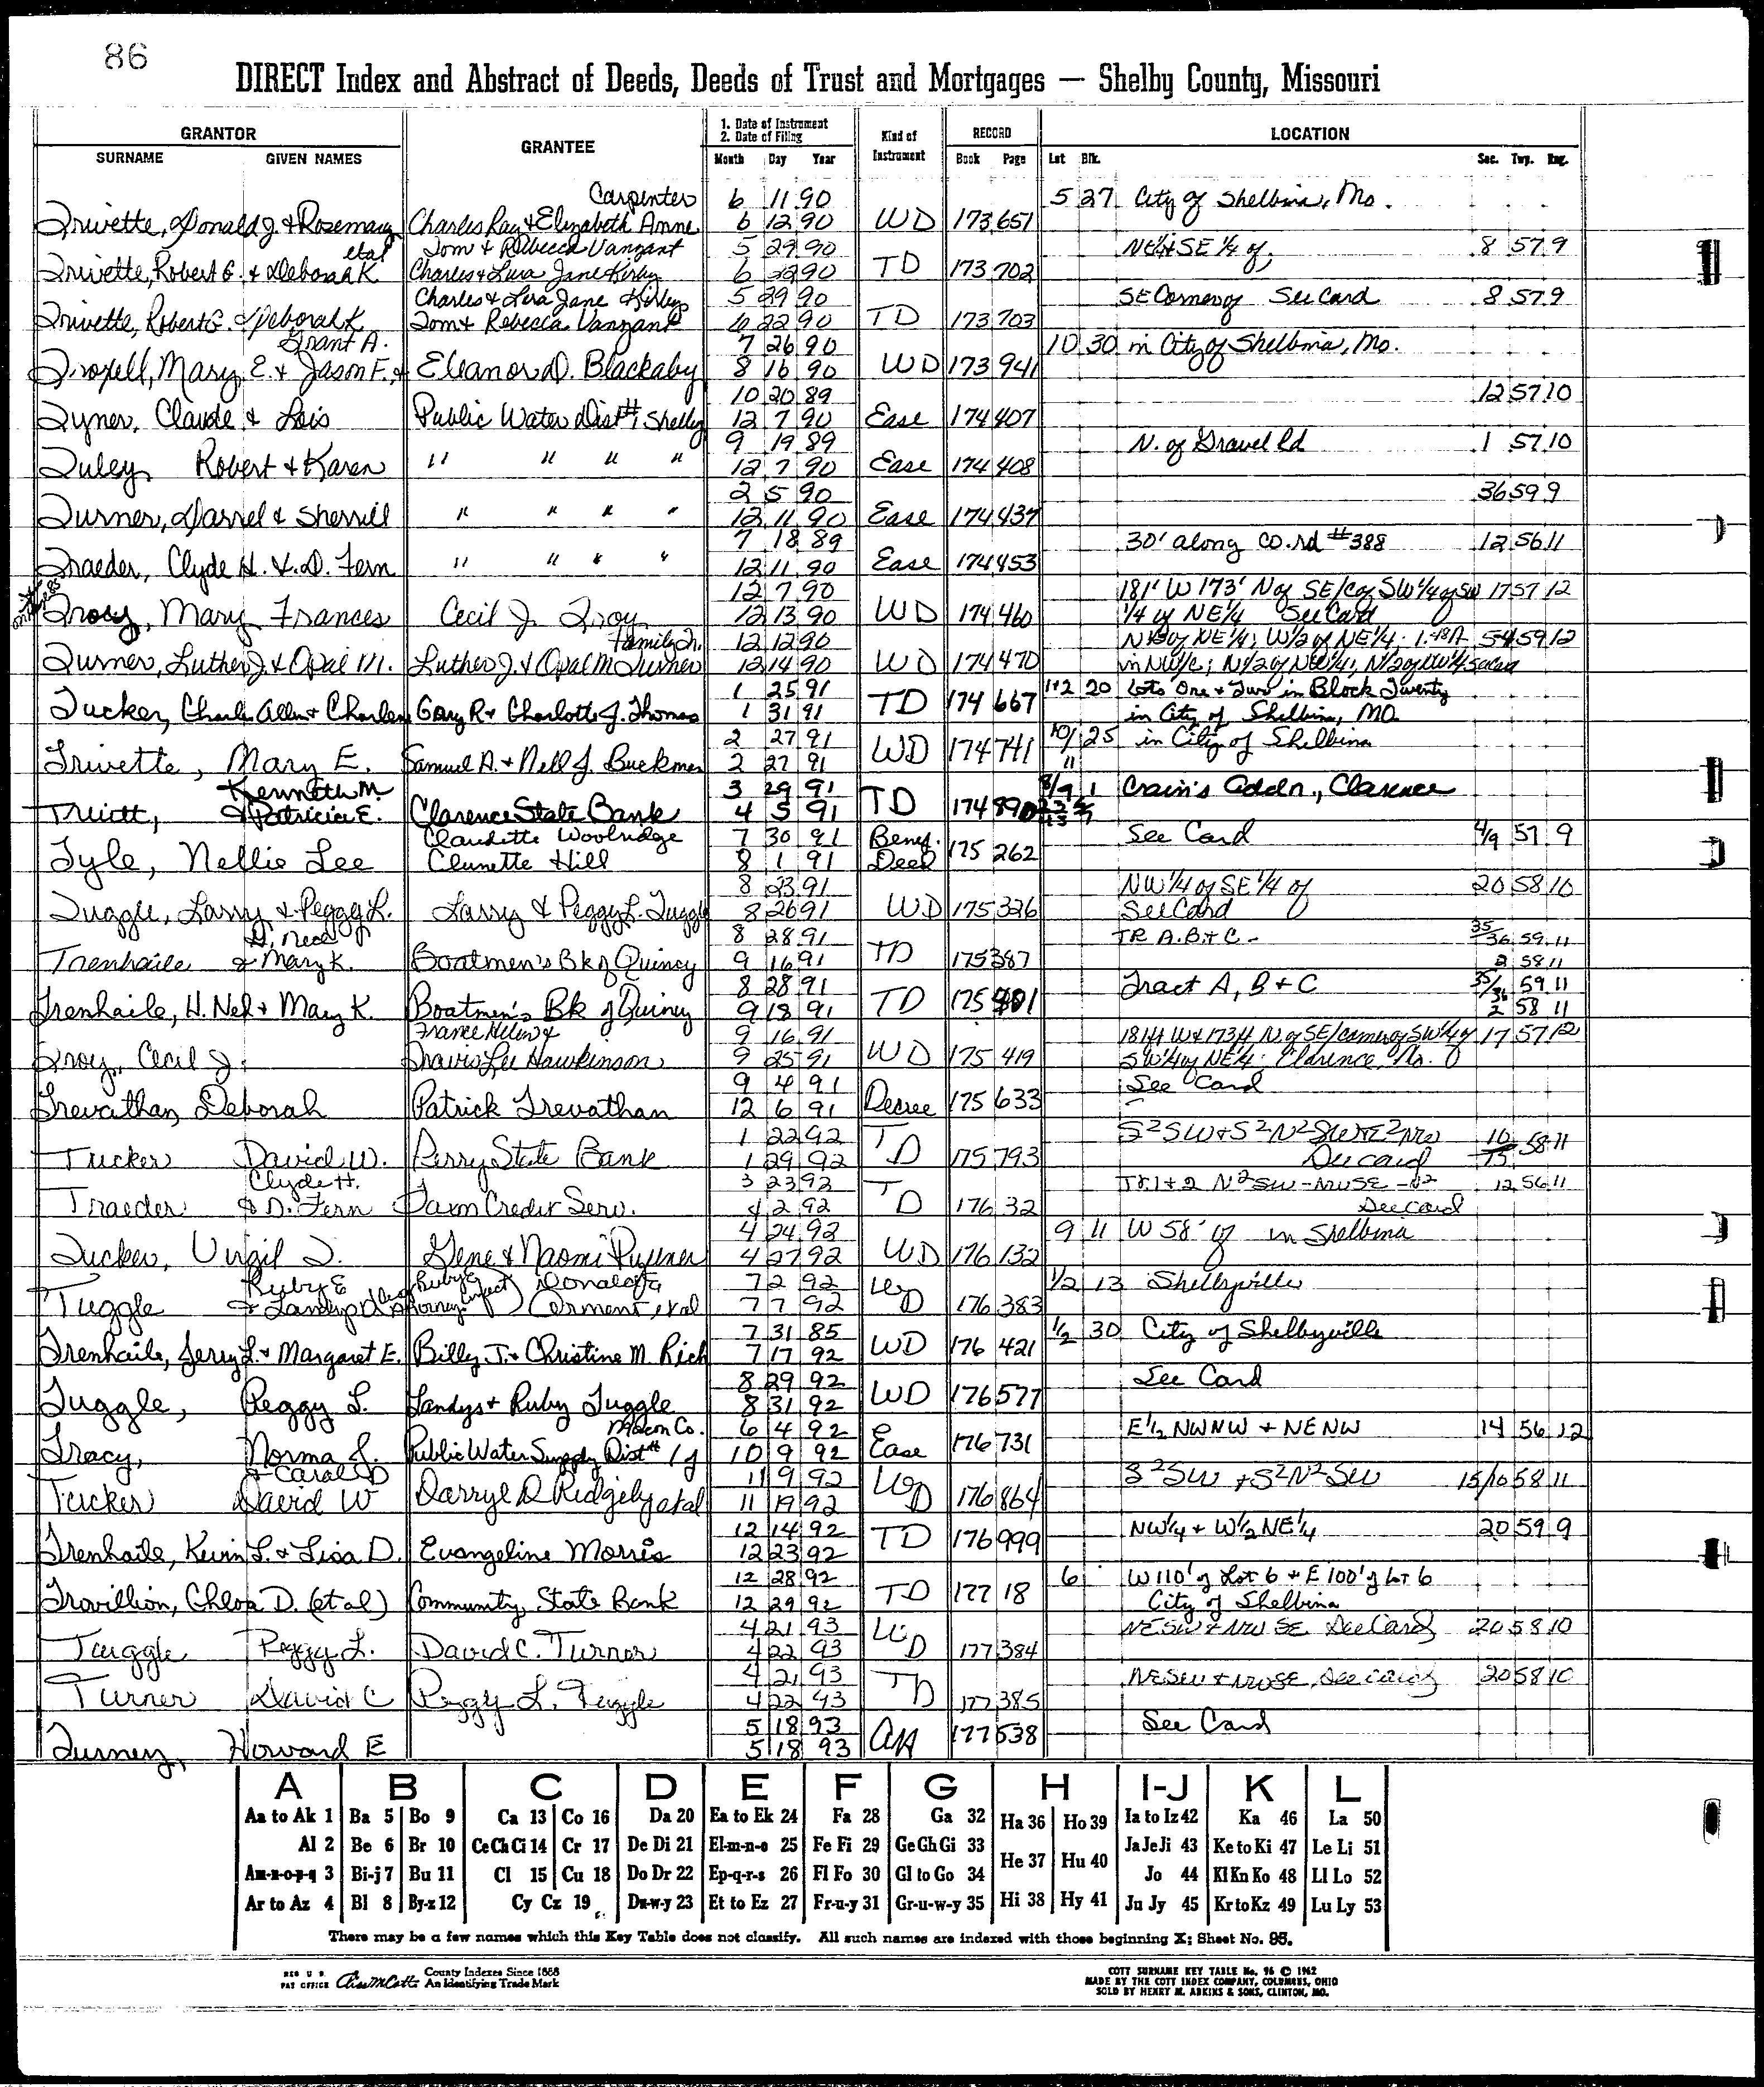 86
DIRECT Index and Abstract of Deeds, Deeds of Trust and Mortgages — Shelby County, Missouri
GRANTOR GRANTEE 1. Date of Instrument 2. Date of Filing Kind of Instrument RECORD LOCATION
SURNAME GIVEN NAMES Month Day Year Book Page Lot Blk. Sec. Twp. Rng.
Carpenter 6 11 90 5 27 City of Shelbina, Mo.
Trivette, Donald J. & Rosemary Charles Ray & Elizabeth Anne 6 12 90 WD 173 651
etal Tom & Rebecca Vanzant 5 29 90 NE 1/4 SE 1/4 of, 8 57 9
Trivette, Robert G. & Deborah K. Charles & Lura Jane Kirby 6 22 90 TD 173 702
Charles & Lura Jane Kirby 5 29 90 SE Corner of See Card 8 57 9
Trivette, Robert G. & Deborah K Tom & Rebecca Vanzant 6 22 90 TD 173 703
Grant A. 7 26 90 10 30 in City of Shelbina, Mo.
Troxell, Mary E. & Jason F., & Eleanor D. Blackaby 8 16 90 WD 173 941
10 20 89 12 57 10
Tyner, Claude & Lois Public Water Dist #1 Shelby 12 7 90 Ease 174 407
9 19 89 N. of Gravel Rd 1 57 10
Tuley, Robert & Karen " " " " 12 7 90 Ease 174 408
2 5 90 36 59 9
Turner, Darrel & Sherrill " " " " 12 11 90 Ease 174 437
7 18 89 30' along Co. rd #388 12 56 11
Traeder, Clyde H. & D. Fern " " " " 12 11 90 Ease 174 453
12 7 90 181' W 173' N of SE/c of SW 1/4 of SW 17 57 12
Troy, Mary Frances Cecil J. Troy 12 13 90 WD 174 460 1/4 of NE 1/4 See Card
Family Tr. 12 12 90 of NE 1/4; W 1/2 of NE 1/4; 59 12
Turner, Luther J. & Opal M. Luther J. & Opal M Turner 12 14 90 WD 174 470 in NW/c; N 1/2 of NW 1/4; N 1/2 of
1 25 91 1+2 20 Lots One & Two in Block Twenty
Tucker, Charles Allen & Charlene Gary R & Charlotte J. Thomas 1 31 91 TD 174 667 in City of Shelbina, MO.
2 27 91 10/11 25 in City of Shelbina
Trivette, Mary E. Samuel A. & Nell J. Buckman 2 27 91 WD 174 741
Kenneth M. 3 29 91 8/9 1 Crain's Addn., Clarence
Truitt, & Patricia E. Clarence State Bank 4 5 91 TD 174 890
Claudette Woolridge 7 30 91 Benef. See Card 4/9 57 9
Tyle, Nellie Lee Clunette Hill 8 1 91 Deed 175 262
8 23 91 NW 1/4 of SE 1/4 of 20 58 10
Tuggle, Larry & Peggy L. Larry & Peggy L. Tuggle 8 26 91 WD 175 326 See Card
8 28 91 TR A. B. & C - 35/36 59 11
Trenhaile & Mary K. Boatmen's Bk of Quincy 9 16 91 TD 175 387 2 58 11
8 28 91 Tract A, B & C 35/36 59 11
Trenhaile, H. Nel & Mary K. Boatmen's Bk of Quincy 9 18 91 TD 175 401 2 58 11
9 16 91 181 ft W & 173 ft N of SE/corner of SW 1/4 of 17 57 12
Troy, Cecil J. Travis Lee Hawkinson 9 25 91 WD 175 419 SW 1/4 of NE 1/4; Clarence, Mo.
9 4 91 See Card
Trevathan, Deborah Patrick Trevathan 12 6 91 Decree 175 633
1 22 92 10/15 58 11
Tucker David W. Perry State Bank 1 29 92 TD 175 793 See card
Clyde H. 3 23 92 TR 1 + 2 N2SW - NWSE 12 56 11
Traeder & D. Fern Farm Credit Serv. 4 2 92 TD 176 32 See Card
4 24 92 9 11 W 58' of in Shelbina
Tucker, Virgil T. Gene & Naomi 4 27 92 WD 176 132
Ruby E 7 2 92 1/2 13 Shelbyville
Tuggle & Landys 7 7 92 WD 176 383
7 31 85 1/2 30 City of Shelbyville
Trenhaile, Jerry L. & Margaret E. Billy J. & Christine M. Rich 7 17 92 WD 176 421
8 29 92 See Card
Tuggle, Peggy L. Landys & Ruby Tuggle 8 31 92 WD 176 577
Macon Co. 6 4 92 E 1/2 NWNW & NENW 14 56 12
Tracy, Norma J. Public Water Supply Dist # 1 of 10 9 92 Ease 176 731
& Carol D 11 9 92 S2SW + S2N2SW 15/10 58 11
Tucker David W Darryl D Ridgely etal 11 19 92 WD 176 864
12 14 92 NW 1/4 & W 1/2 NE 1/4 20 59 9
Trenhaile, Kevin L. & Lisa D. Evangeline Morris 12 23 92 TD 176 999
12 28 92 6 W 110' of Lot 6 & E 100' of Lot 6
Travillion, Chloa D. (etal) Community State Bank 12 29 92 TD 177 18 City of Shelbina
4 21 93 NESW & NWSE See Card 20 58 10
Tuggle Peggy L. David C. Turner 4 22 93 WD 177 384
4 21 93 NESW & NWSE, See Card 20 58 10
Turner David C Peggy L. Tuggle 4 22 93 TD 177 385
5 18 93 See Card
Turney, Howard E 5 18 93 Aff 177 538
A B C D E F G H I-J K L
Aa to Ak 1 Ba 5 Bo 9 Ca 13 Co 16 Da 20 Ea to Ek 24 Fa 28 Ga 32 Ha 36 Ho 39 Ia to Iz 42 Ka 46 La 50
Al 2 Be 6 Br 10 Ce Ch Ci 14 Cr 17 De Di 21 El-m-n-o 25 Fe Fi 29 Ge Gh Gi 33 He 37 Hu 40 Ja Je Ji 43 Ke to Ki 47 Le Li 51
Am-n-o-p-q 3 Bi-j 7 Bu 11 Cl 15 Cu 18 Do Dr 22 Ep-q-r-s 26 Fl Fo 30 Gl to Go 34 Jo 44 Kl Kn Ko 48 Ll Lo 52
Ar to Az 4 Bl 8 By-z 12 Cy Cz 19 Du-w-y 23 Et to Ez 27 Fr-u-y 31 Gr-u-w-y 35 Hi 38 Hy 41 Ju Jy 45 Kr to Kz 49 Lu Ly 53
There may be a few names which this Key Table does not classify. All such names are indexed with those beginning X; Sheet No. 95.
REG U S PAT OFFICE County Indexes Since 1888 An Identifying Trade Mark
COTT SURNAME KEY TABLE No. 96 © 1962
MADE BY THE COTT INDEX COMPANY, COLUMBUS, OHIO
SOLD BY HENRY M. ADKINS & SONS, CLINTON, MO.